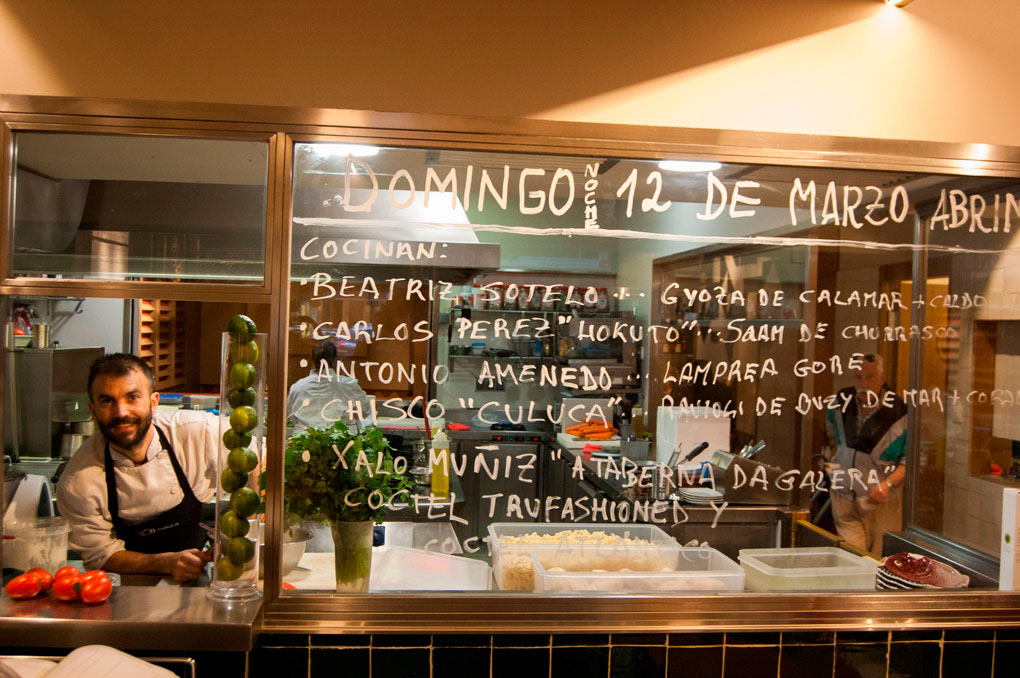 DOMINGO NOCHE 12 DE MARZO ABRIN
COCINAN:
• BEATRIZ SOTELO ... GYOZA DE CALAMAR + CALDO
• CARLOS PEREZ "HOKUTO" ... SAAM DE CHURRASCO
• ANTONIO AMENEDO ... LAMPREA GORE
• CHISCO "CULUCA" RAVIOLI DE BUEY DE MAR +
• XALO MUÑIZ "A TABERNA DA GALERA"
COCTEL TRUFASHIONED Y